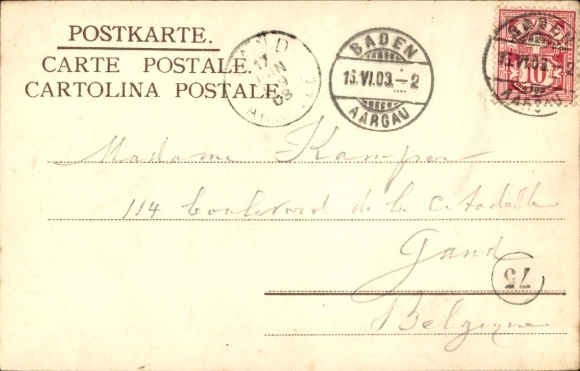 POSTKARTE.
CARTE POSTALE.
CARTOLINA POSTALE.
17 JUN 9 03
BADEN
13.VI.03.-2
AARGAU
BADEN
13.VI.03.-2
AARGAU
10
Madame Kamper
114 boulevard de la Citadelle
Gand
75
Belgique